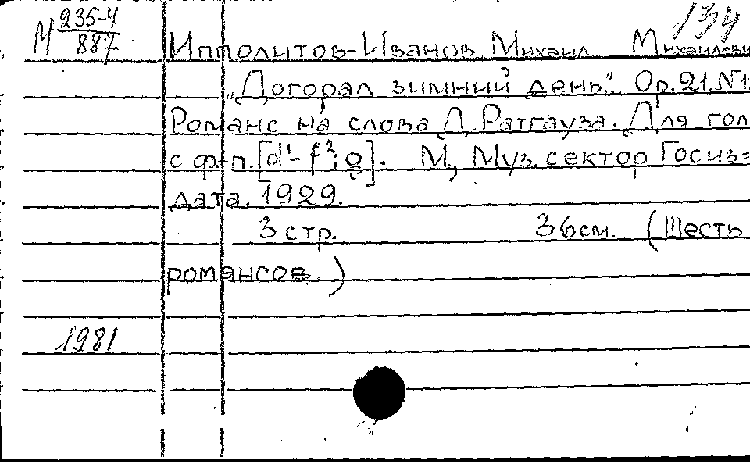 134
М 235-4
887
Ипполитов-Иванов, Михаил Михайлови
"Догорал зимний день". Op.21.N1
Романс на слова Д. Ратгауза. Для гол
с ф-п. [d¹- f²; ]. М., Муз. сектор Госиз-
дата, 1929.
3 стр. 36см. (Шесть
романсов.)
1981